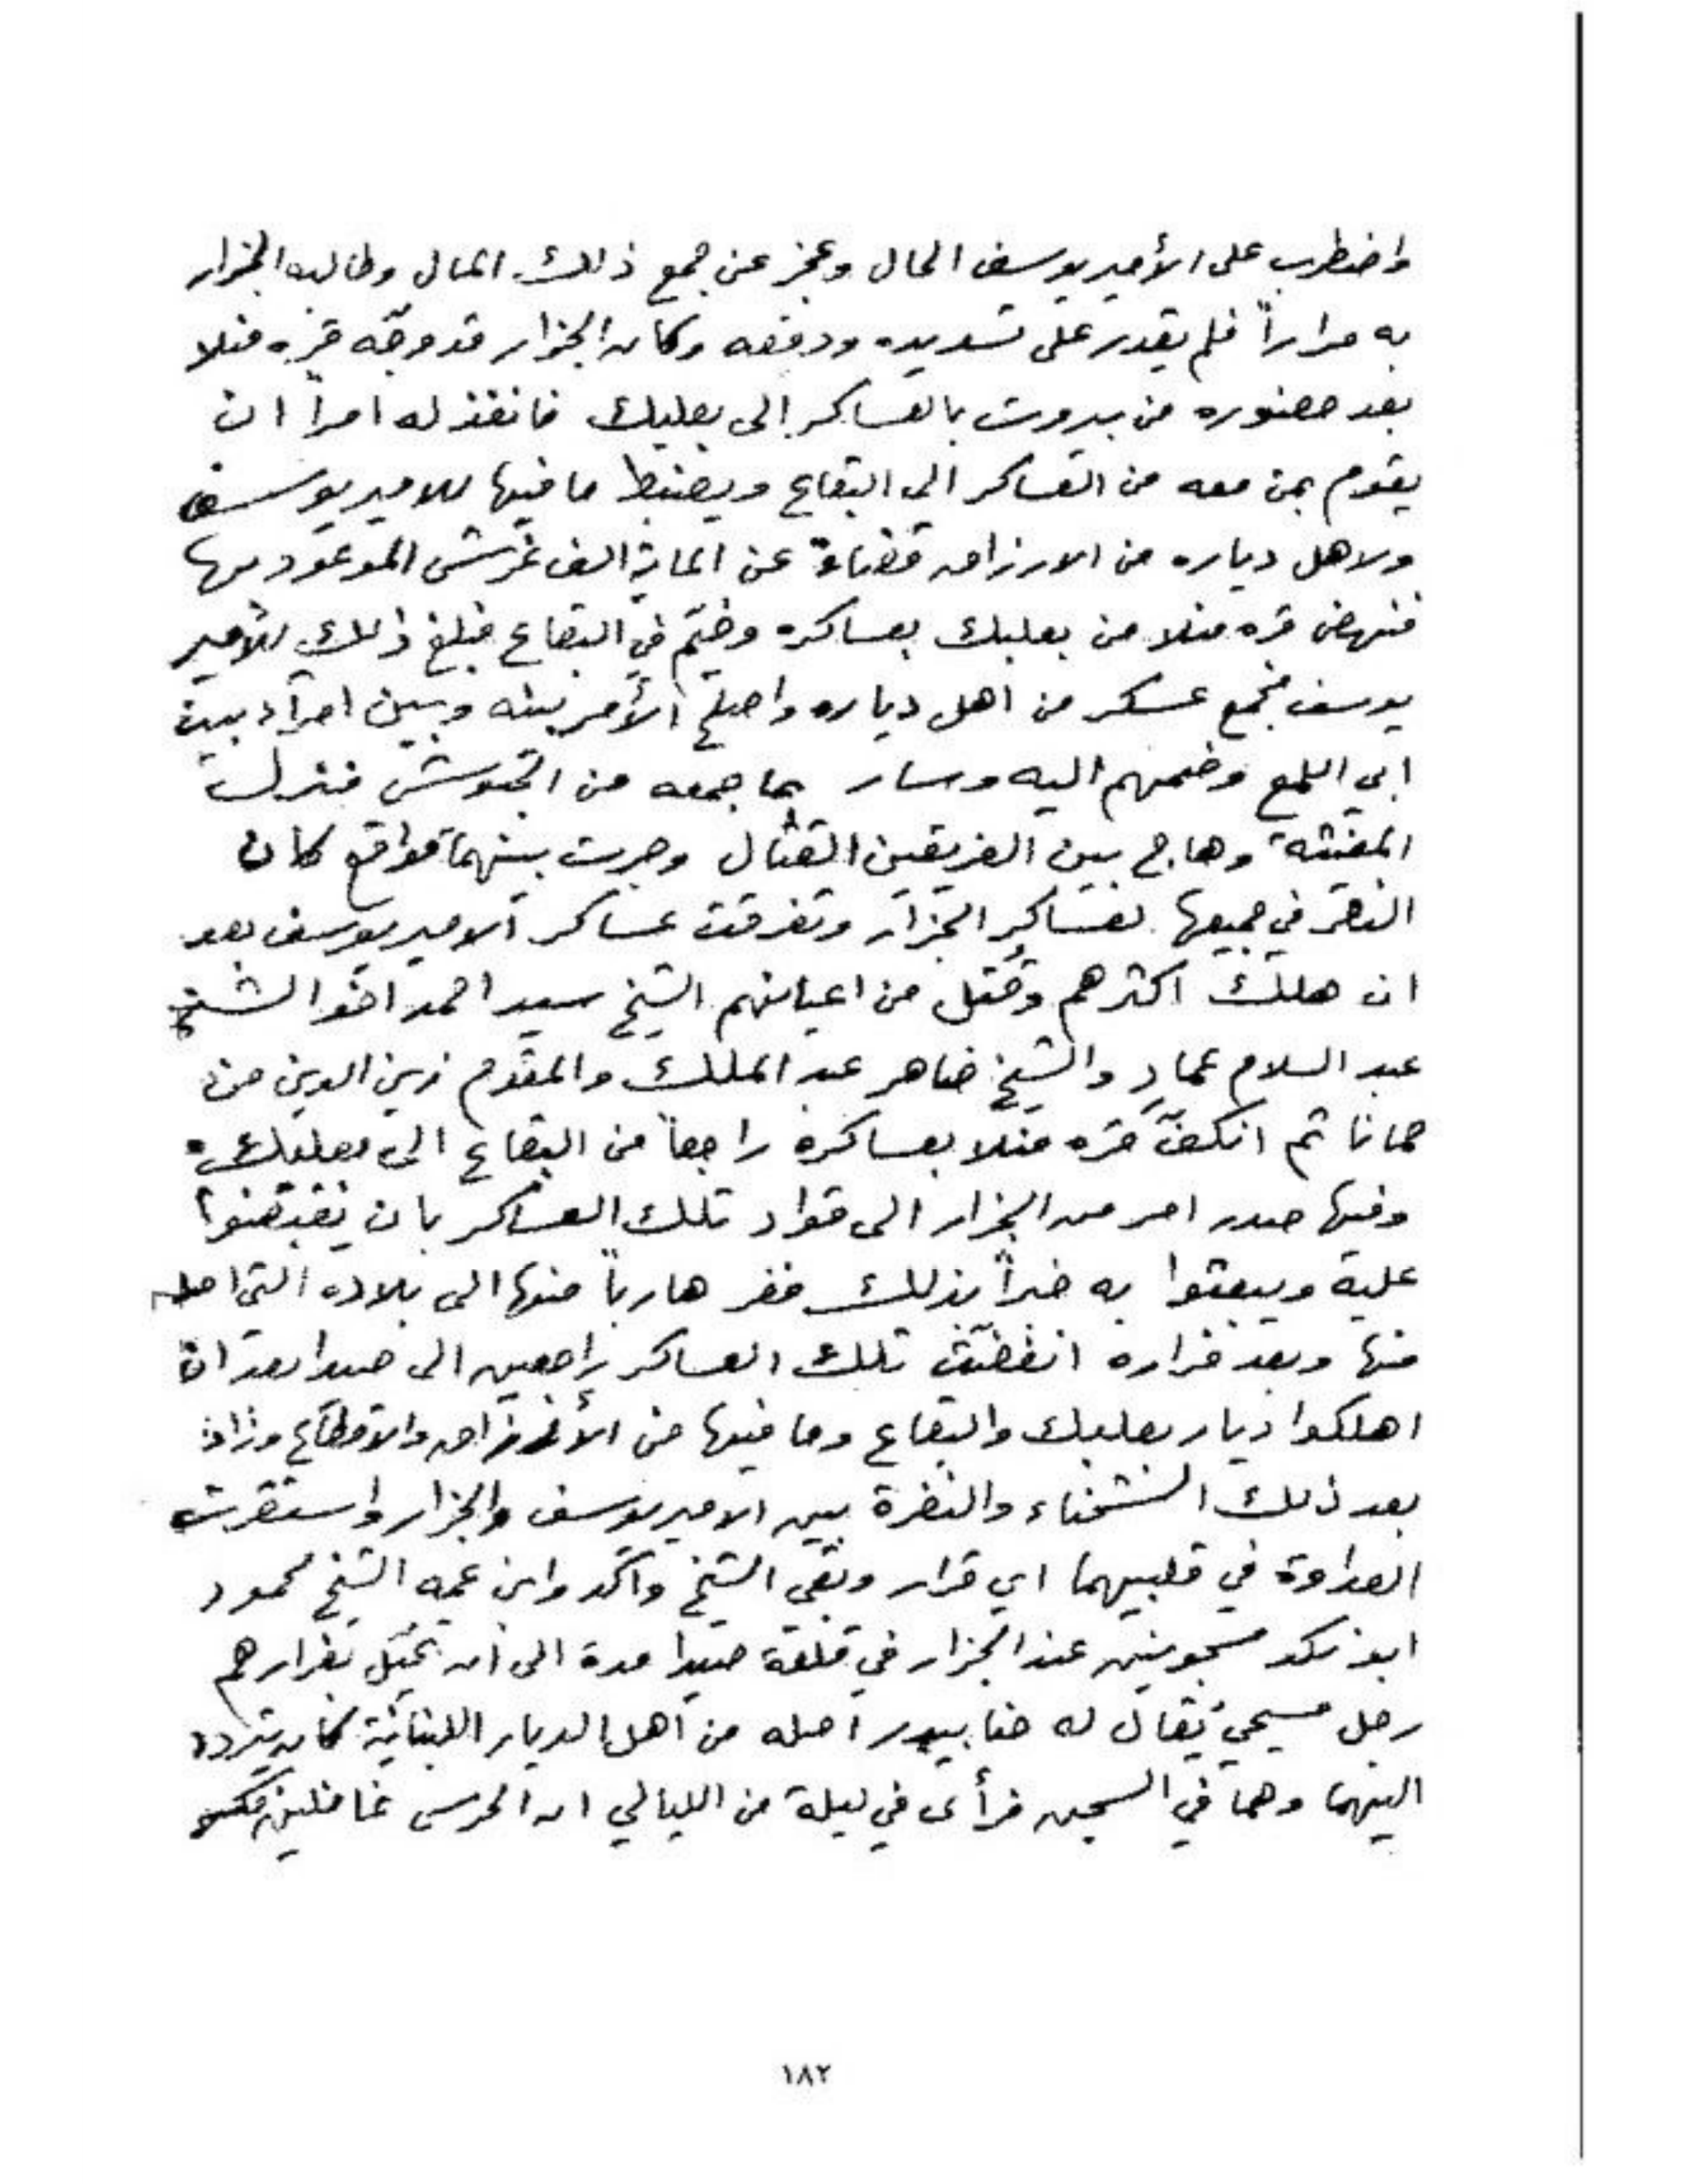 واضطرب على الأمير يوسف الحال وعجز عن جمع ذلك المال وطالبه الجزار
به مراراً فلم يقدر على تسديده ودفعه وكان الجزار قد وجّه قره منلا
بعد حضوره من بيروت بالعساكر الى بعلبك فانفذ له امراً ان
يقوم بمن معه من العساكر الى البقاع ويضبط ما فيها للامير يوسف
ولاهل دياره من الارزاق قضاءً عن الماية الف غرش الموعود بها
فنهض قره منلا من بعلبك بعساكره وخيّم في البقاع فبلغ ذلك للأمير
يوسف فجمع عسكر من اهل دياره واصلح الأمر بينه وبين امراء بيت
ابي اللمع وضمهم اليه وسار بما جمعه من الجيوش فنزل
المغيثة وهاج بين الفريقين القتال وجرت بينهما مواقع كان
النصر في جميعها لعساكر الجزار وتفرقت عساكر الامير يوسف بعد
ان هلك اكثرهم وقُتل من اعيانهم الشيخ سيد احمد اخو الشيخ
عبد السلام عماد والشيخ ضاهر عبد الملك والمقدم زين الدين من
حمانا ثم انكفّ قره منلا بعساكره راجعاً من البقاع الى بعلبك
وفيها صدر امر من الجزار الى قواد تلك العساكر بان يقبضوا
عليه ويبعثوا به خبراً بذلك ففر هارباً منها الى بلاده التي اصله
منها وبعد فراره انفضّت تلك العساكر راجعين الى صيدا بعد ان
اهلكوا ديار بعلبك والبقاع وما فيها من الأرزاق والاقطاع وزاد
بعد ذلك الشحناء والنفرة بين الامير يوسف والجزار واستقرت
العداوة في قلبيهما اي قرار وبقي الشيخ واكد وابن عمه الشيخ محمود
ابو نكد مسجونين عند الجزار في قلعة صيدا مدة الى ان تحيّل بفرارهم
رجل مسيحي يُقال له حنا بيدر اصله من اهل الديار اللبنانيّة كان يتردد
اليهما وهما في السجن فرأى في ليلة من الليالي ان الحرس غافلين
١٨٢